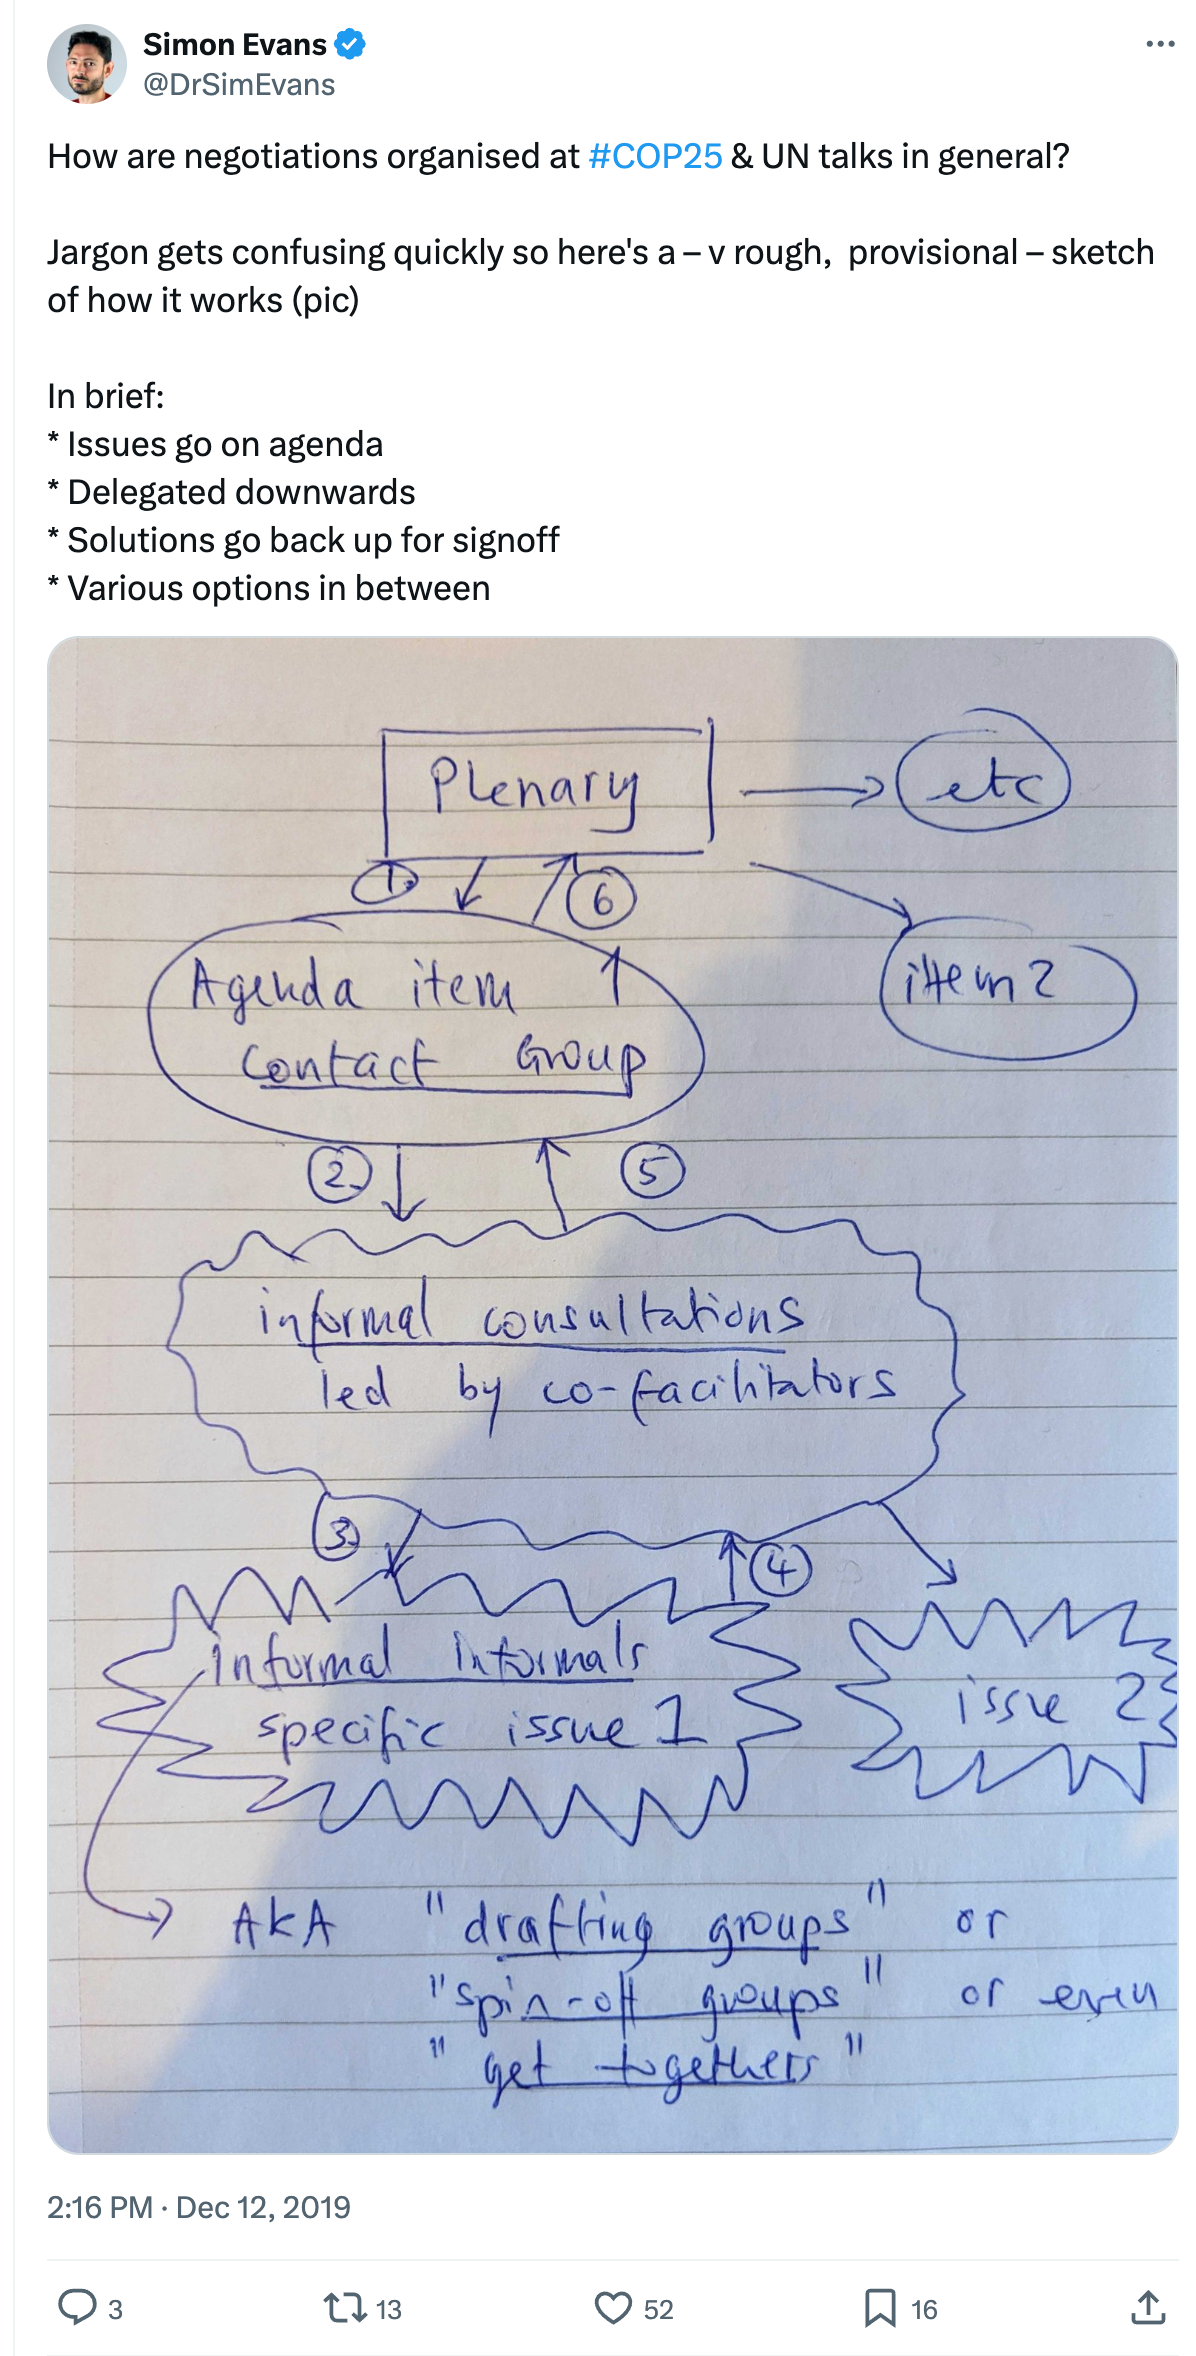 Simon Evans
@DrSimEvans
How are negotiations organised at #COP25 & UN talks in general?
Jargon gets confusing quickly so here's a – v rough,  provisional – sketch
of how it works (pic)
In brief:
* Issues go on agenda
* Delegated downwards
* Solutions go back up for signoff
* Various options in between
Plenary
etc
1
6
Agenda item 1
contact Group
item 2
2
5
informal consultations
led by co-facilitators
3
4
informal informals
specific issue 1
issue 2
AKA "drafting groups" or
"spin-off groups" or even
"get togethers"
2:16 PM · Dec 12, 2019
3
13
52
16